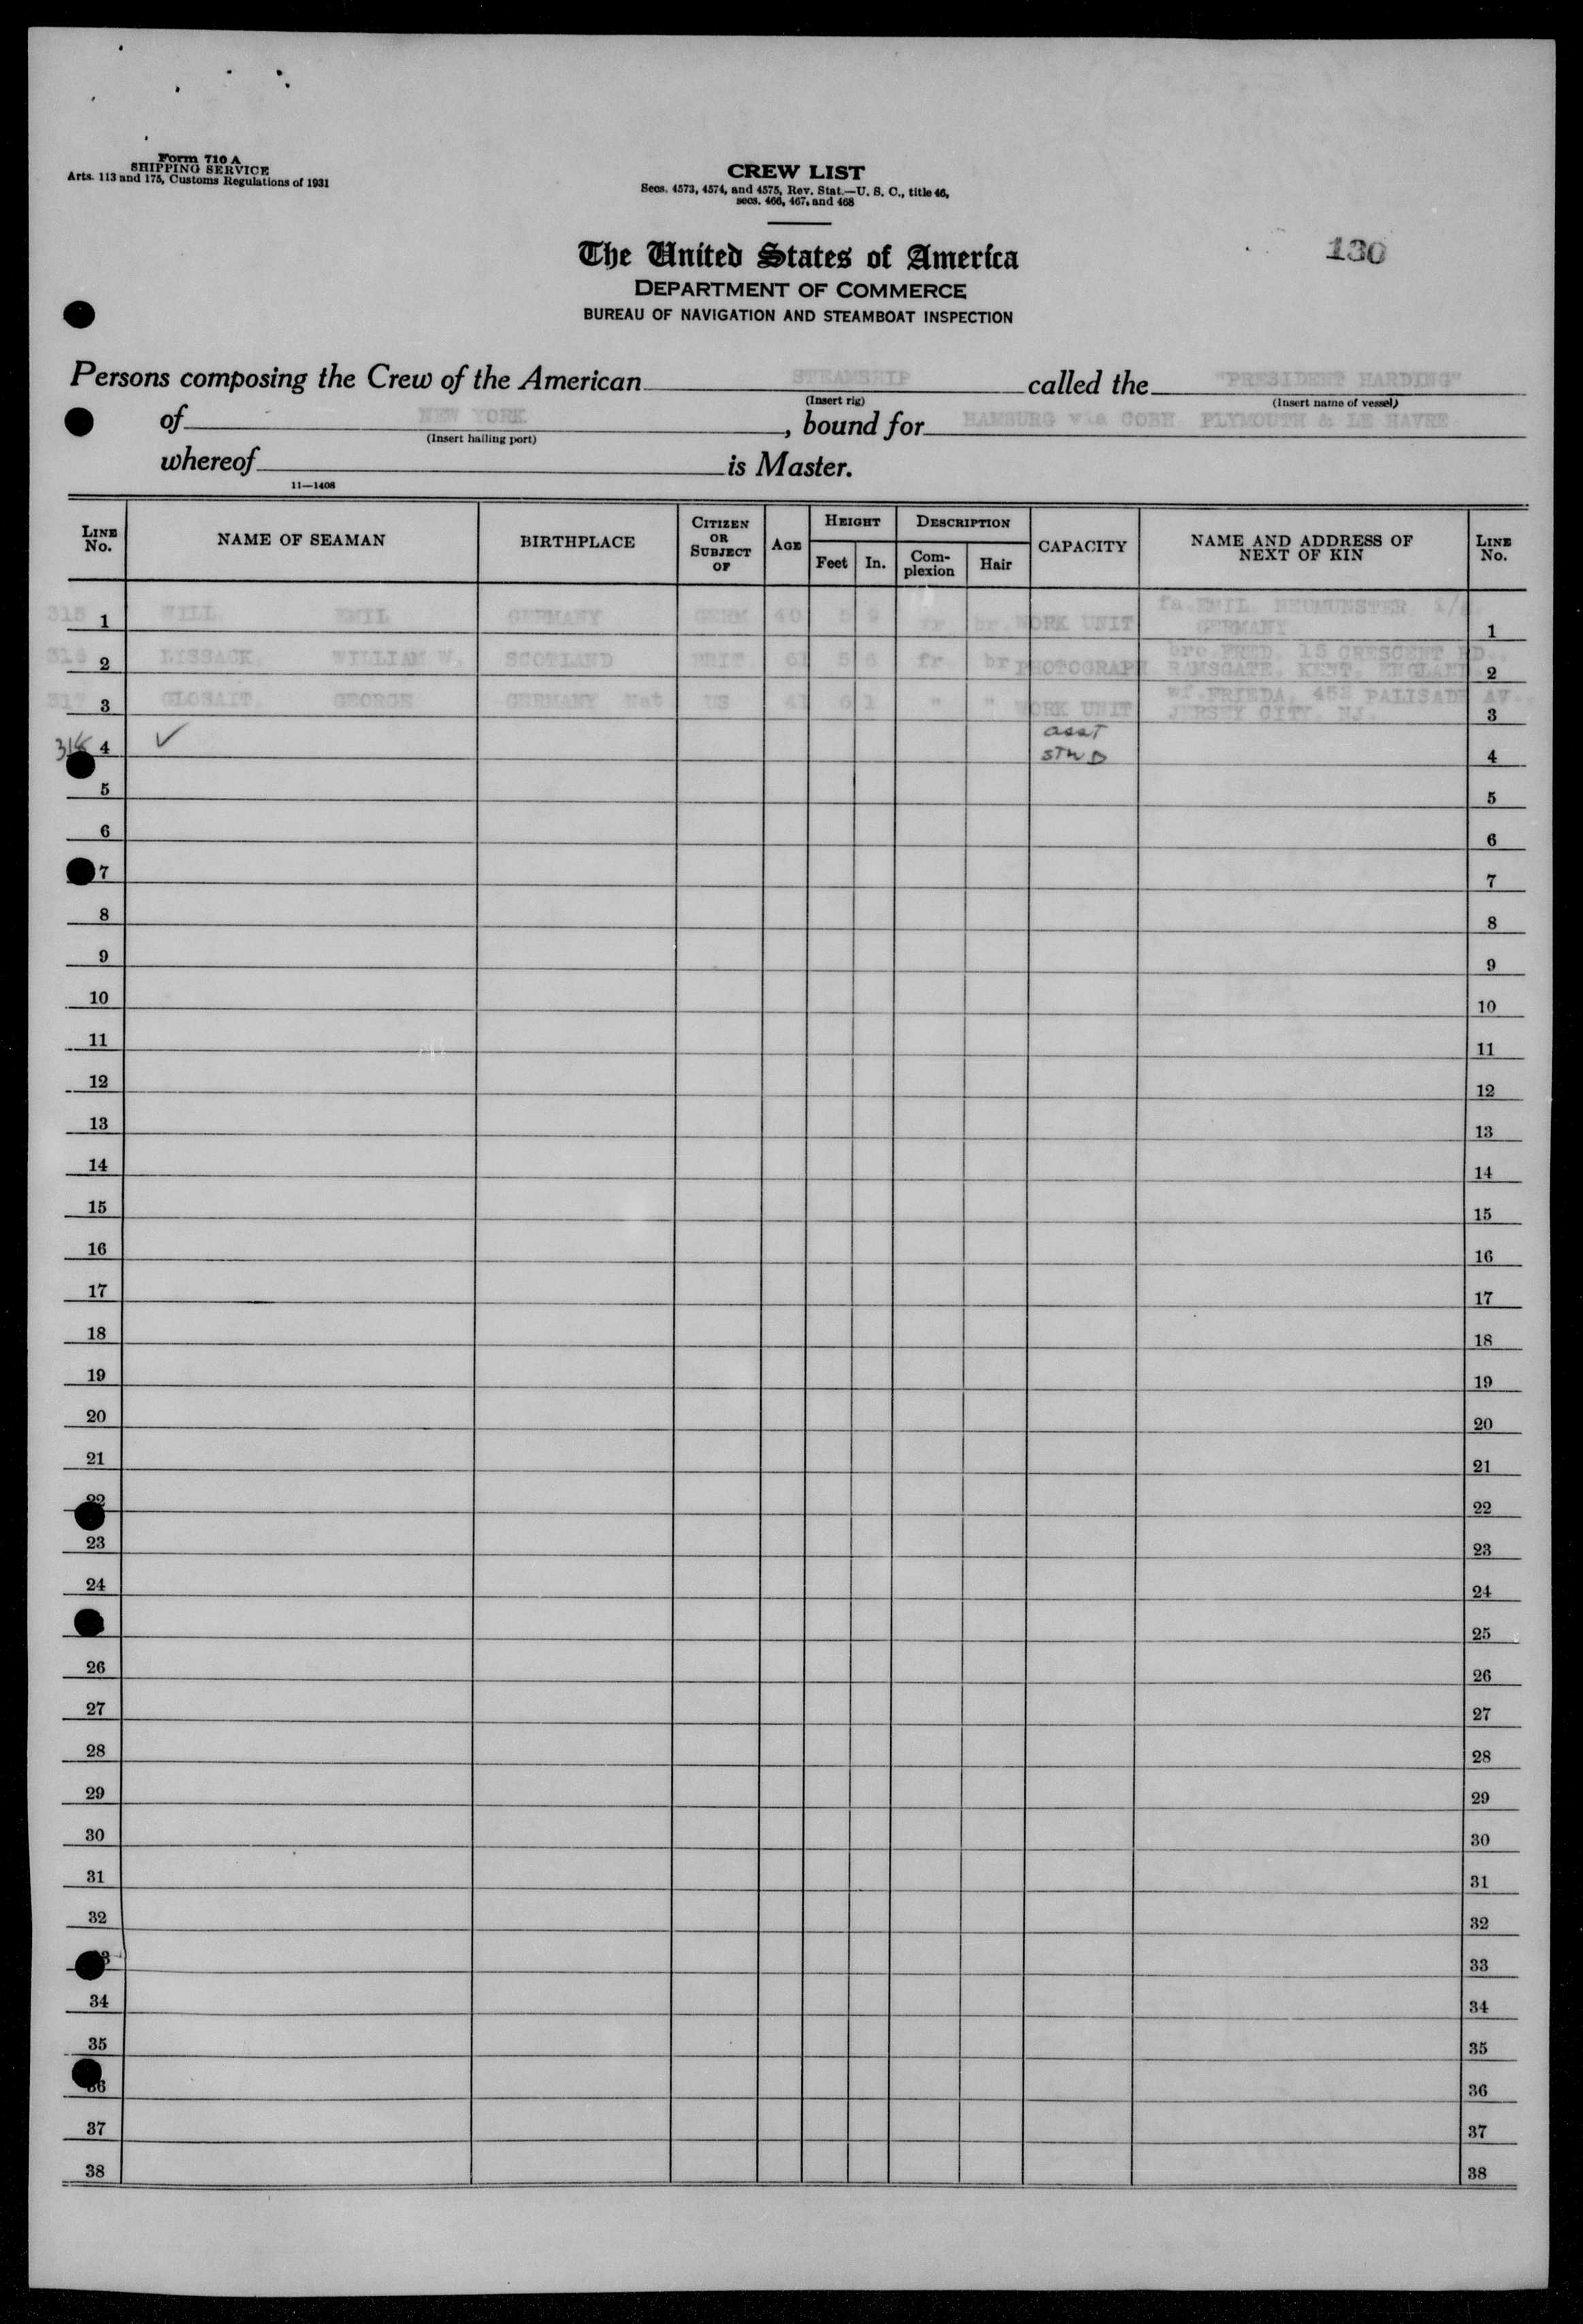 Form 710 A
SHIPPING SERVICE
Arts. 113 and 175, Customs Regulations of 1931
CREW LIST
Secs. 4573, 4574, and 4575, Rev. Stat.—U. S. C., title 46,
secs. 466, 467, and 468
The United States of America
DEPARTMENT OF COMMERCE
BUREAU OF NAVIGATION AND STEAMBOAT INSPECTION
130
Persons composing the Crew of the American STEAMSHIP called the "PRESIDENT HARDING"
(Insert rig) (Insert name of vessel)
of NEW YORK, bound for HAMBURG via COBH PLYMOUTH & LE HAVRE
(Insert hailing port)
whereof is Master.
11—1408
LINE No. NAME OF SEAMAN BIRTHPLACE CITIZEN OR SUBJECT OF AGE HEIGHT Feet In. DESCRIPTION Complexion Hair CAPACITY NAME AND ADDRESS OF NEXT OF KIN LINE No.
315 1 WILL EMIL GERMANY GERM 40 5 9 fr br WORK UNIT fa EMIL NEUMUNSTER GERMANY 1
316 2 LISSACK, WILLIAM W. SCOTLAND BRIT 61 5 6 fr br PHOTOGRAPH bro FRED, 15 CRESCENT RD. RAMSGATE, KENT, ENGLAND 2
317 3 GLOSAIT, GEORGE GERMANY Nat US 41 6 1 " " WORK UNIT wf FRIEDA, 452 PALISADE AV. JERSEY CITY, NJ. 3
318 4 ✓ asst STWD 4
5 5
6 6
7 7
8 8
9 9
10 10
11 11
12 12
13 13
14 14
15 15
16 16
17 17
18 18
19 19
20 20
21 21
22 22
23 23
24 24
25
26 26
27 27
28 28
29 29
30 30
31 31
32 32
33 33
34 34
35 35
36 36
37 37
38 38